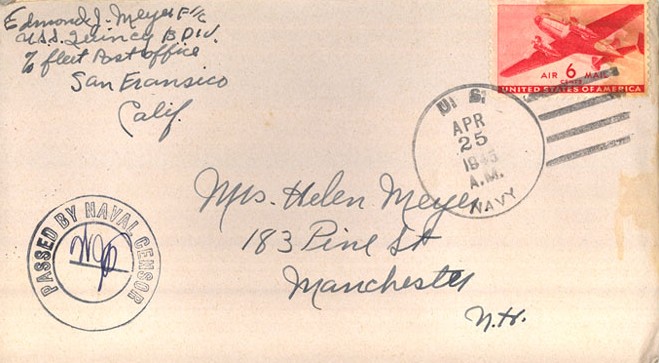 Edmond J. Meyer F 1/c
U.S.S. Quincy B DIV.
% fleet Post office
San Fransico
Calif.
AIR 6 MAIL
CENTS
UNITED STATES OF AMERICA
U. S.
APR
25
1945
A.M.
NAVY
Mrs. Helen Meyer
183 Pine St
Manchester
N.H.
PASSED BY NAVAL CENSOR